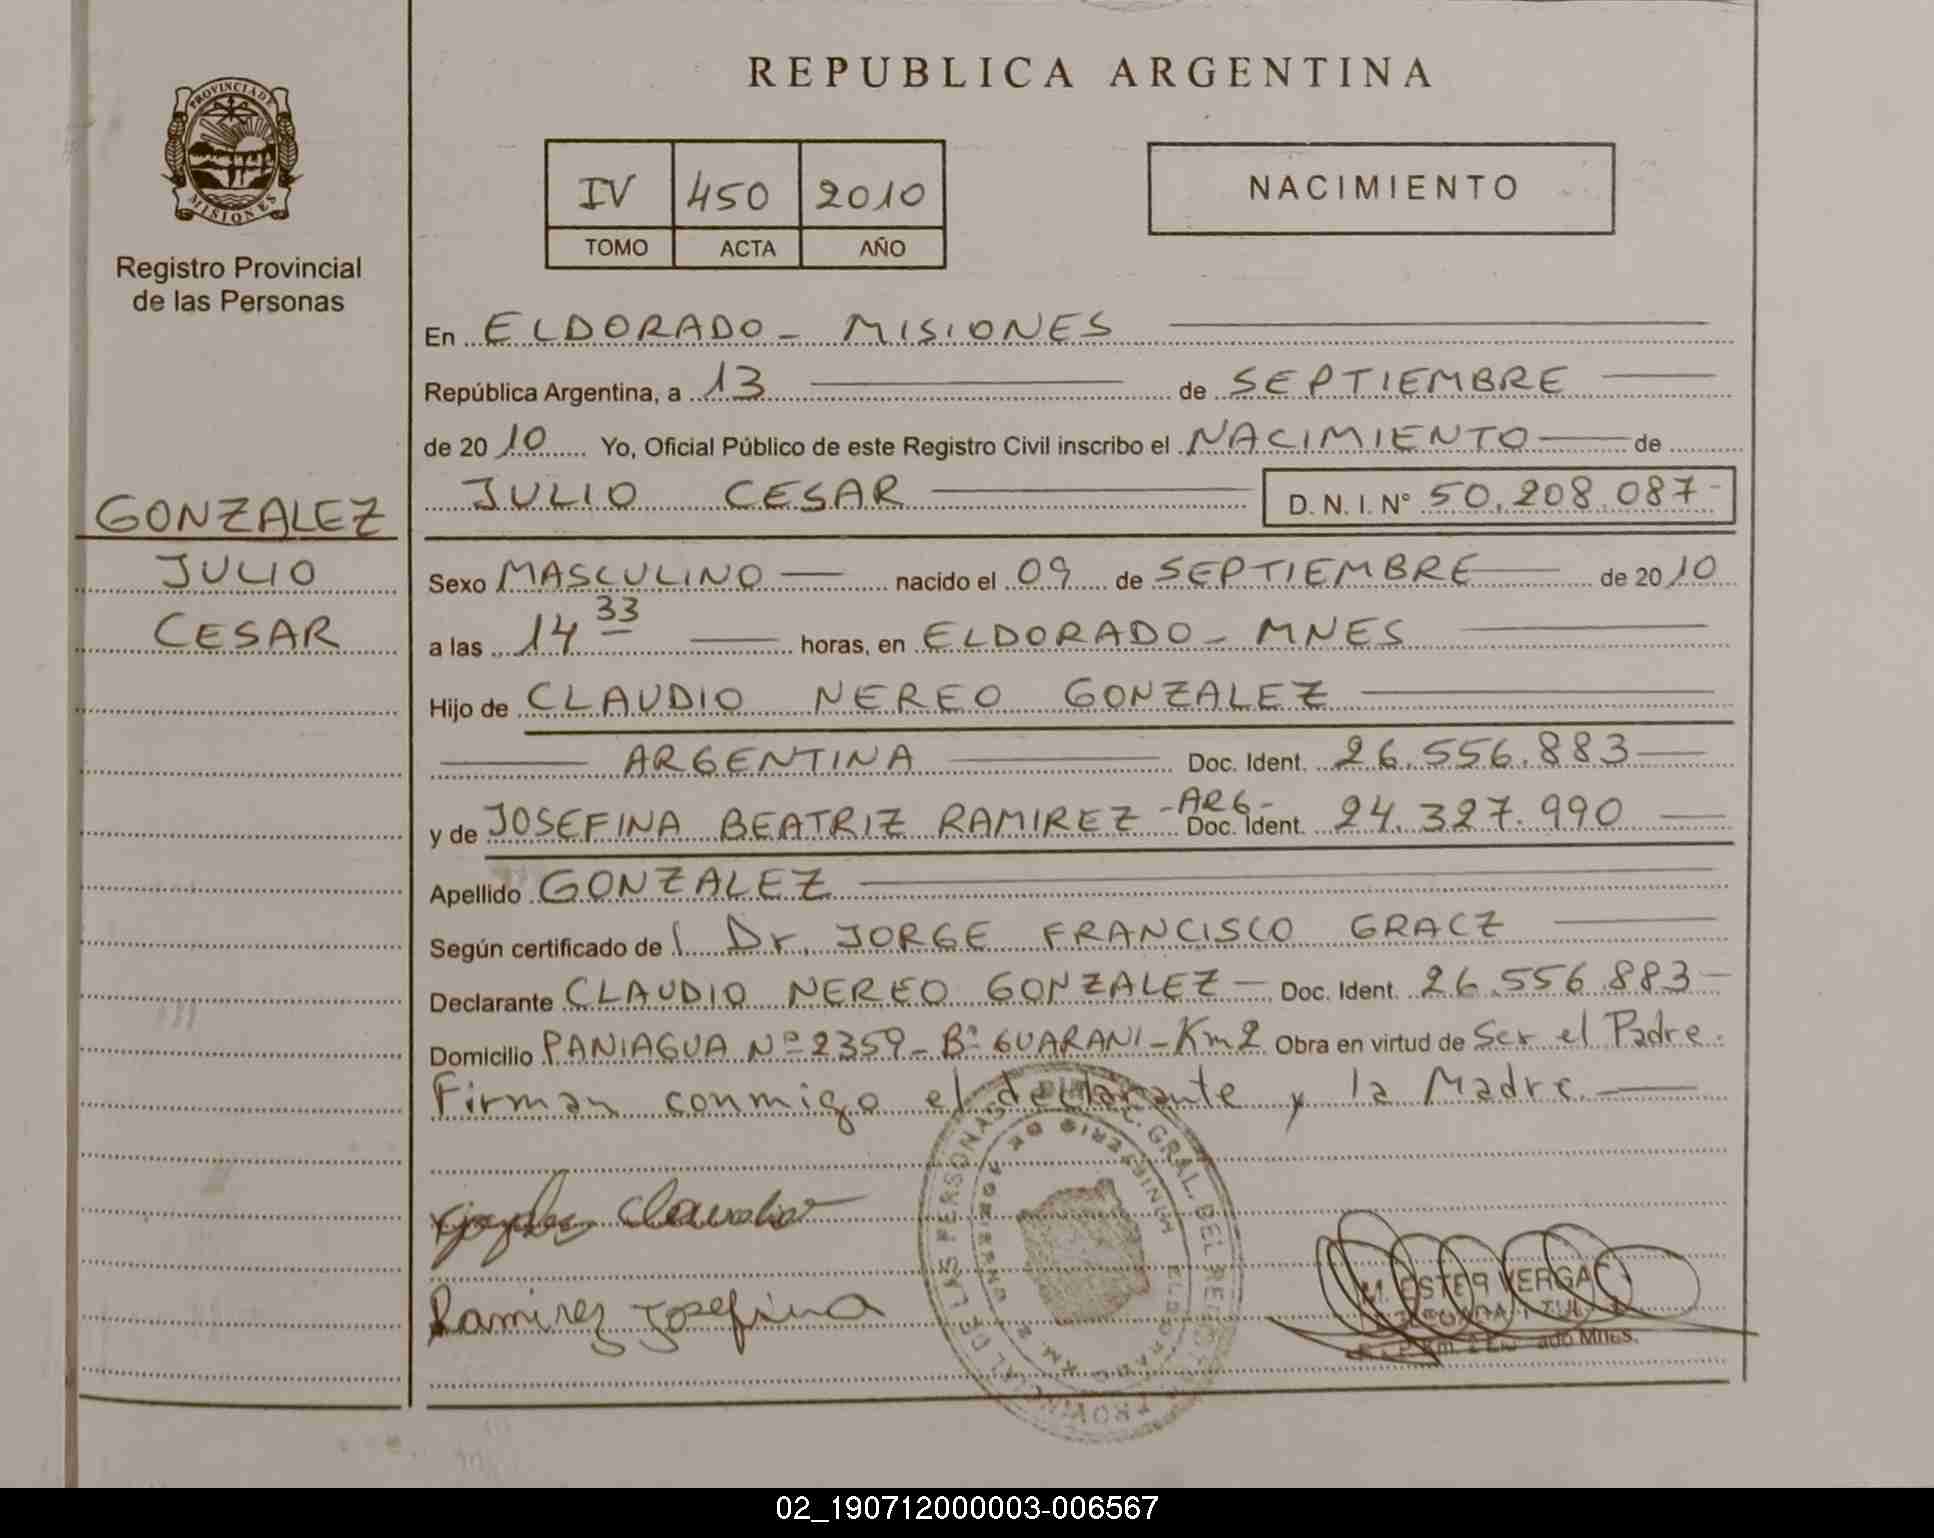 PROVINCIA DE
MISIONES
Registro Provincial
de las Personas
GONZALEZ
JULIO
CESAR
REPUBLICA ARGENTINA
IV 450 2010
TOMO ACTA AÑO
NACIMIENTO
En ELDORADO - MISIONES
República Argentina, a 13 de SEPTIEMBRE
de 2010 Yo, Oficial Público de este Registro Civil inscribo el NACIMIENTO de
JULIO CESAR D. N. I. N° 50.208.087-
Sexo MASCULINO nacido el 09 de SEPTIEMBRE de 2010
a las 14 33 horas, en ELDORADO - MNES
Hijo de CLAUDIO NEREO GONZALEZ
ARGENTINA Doc. Ident. 26.556.883
y de JOSEFINA BEATRIZ RAMIREZ -ARG- Doc. Ident. 24.327.990
Apellido GONZALEZ
Según certificado de l Dr. JORGE FRANCISCO GRACZ
Declarante CLAUDIO NEREO GONZALEZ - Doc. Ident. 26.556.883-
Domicilio PANIAGUA Nº 2359 - Bº GUARANI - Km 2 Obra en virtud de Ser el Padre.
Firman conmigo el declarante y la Madre.
Claudio
Ramirez Josefina
M. ESTER VERGA
02_190712000003-006567